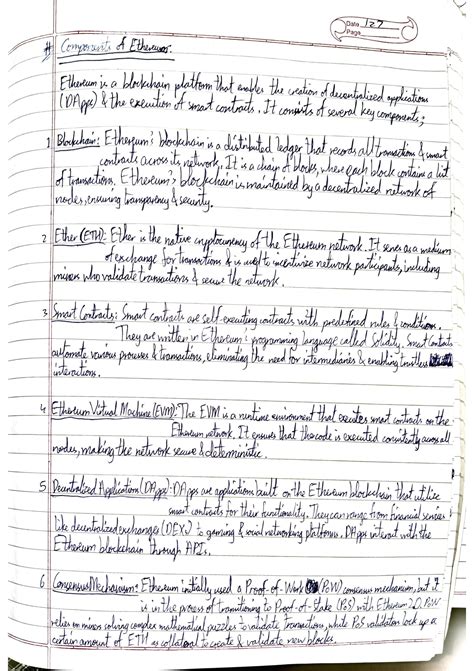 Date 127
Page
# Components of Ethereum.
Ethereum is a blockchain platform that enables the creation of decentralized applications
(DApps) & the execution of smart contracts. It consists of several key components:
1 Blockchain: Ethereum's blockchain is a distributed ledger that records all transactions & smart
contracts across its network. It is a chain of blocks, where each block contains a list
of transactions. Ethereum's blockchain is maintained by a decentralized network of
nodes, ensuring transparency & security.
2 Ether (ETH): Ether is the native cryptocurrency of the Ethereum network. It serves as a medium
of exchange for transactions & is used to incentivize network participants, including
miners who validate transactions & secure the network.
3 Smart Contracts: Smart contracts are self-executing contracts with predefined rules & conditions.
They are written in Ethereum's programming language called Solidity. Smart Contracts
automate various processes & transactions, eliminating the need for intermediaries & enabling trustless
interactions.
4 Ethereum Virtual Machine (EVM): The EVM is a runtime environment that executes smart contracts on the
Ethereum network. It ensures that the code is executed consistently across all
nodes, making the network secure & deterministic.
5 Decentralized Application (DApps): DApps are applications built on the Ethereum blockchain that utilize
smart contracts for their functionality. They can range from financial services
like decentralized exchanges (DEXs) to gaming & social networking platforms. DApps interact with the
Ethereum blockchain through APIs.
6 Consensus Mechanism: Ethereum initially used a Proof-of-Work (PoW) consensus mechanism, but it
is in the process of transitioning to Proof-of-Stake (PoS) with Ethereum 2.0. PoW
relies on miners solving complex mathematical puzzles to validate transactions, while PoS validators lock up a
certain amount of ETH as collateral to create & validate new blocks.